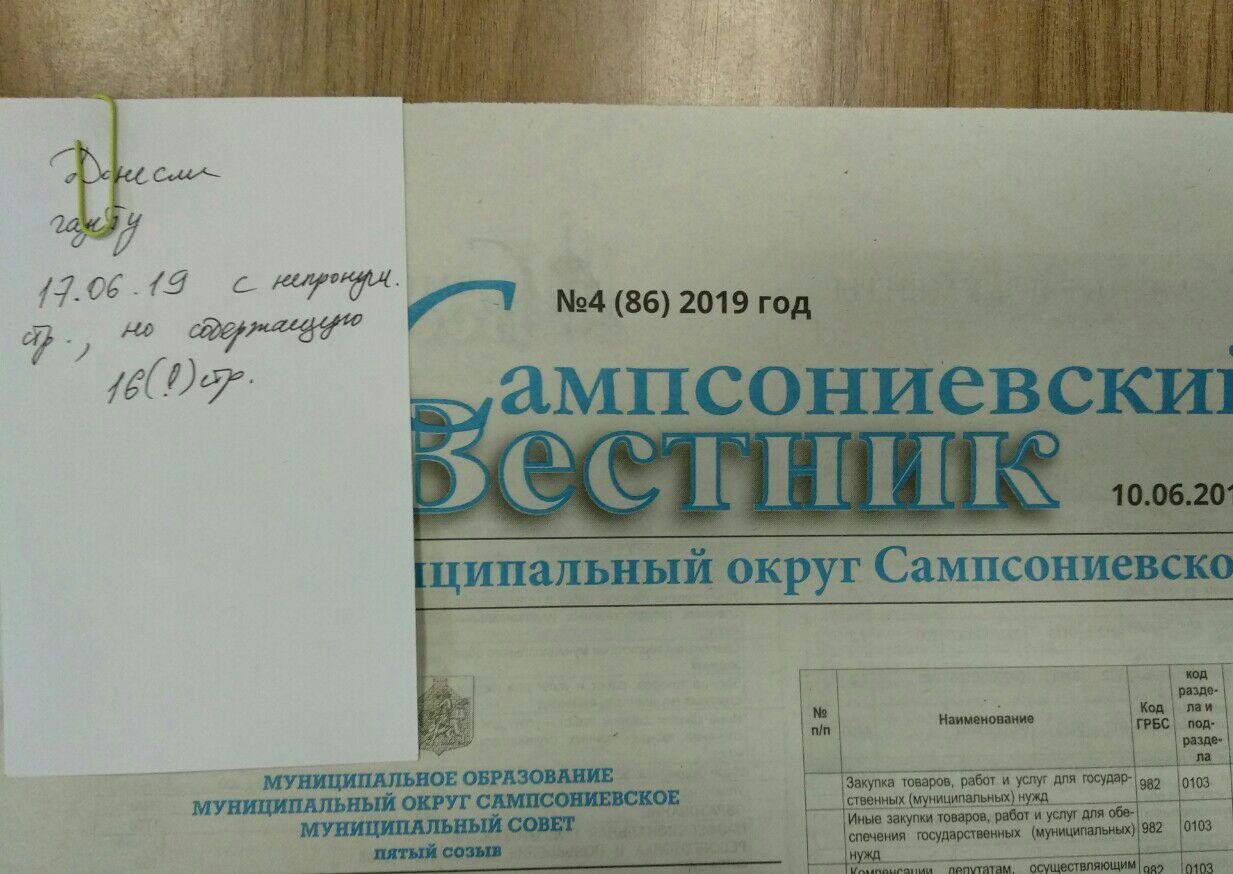 Донесли
газету
17.06.19 с непронум.
стр., но содержащую
16(!) стр.
№4 (86) 2019 год
Сампсониевский
Вестник
10.06.201
ципальный округ Сампсониевско
МУНИЦИПАЛЬНОЕ ОБРАЗОВАНИЕ
МУНИЦИПАЛЬНЫЙ ОКРУГ САМПСОНИЕВСКОЕ
МУНИЦИПАЛЬНЫЙ СОВЕТ
ПЯТЫЙ СОЗЫВ
№ п/п
Наименование
Код
ГРБС
код
разде-
ла и
под-
разде-
ла
Закупка товаров, работ и услуг для государ-
ственных (муниципальных) нужд
982 0103
Иные закупки товаров, работ и услуг для обе-
спечения государственных (муниципальных)
нужд
982 0103
Компенсации депутатам, осуществляющим
982 0103